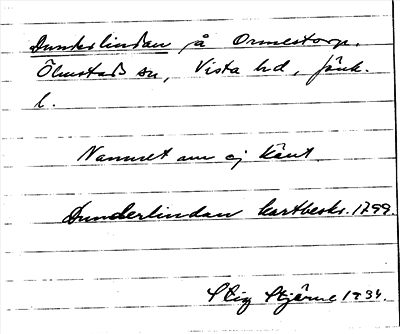 Dunderlindan å Ormestorp.
Ölmstads sn, Vista hd, Jönk.
l.
Namnet nu ej känt.
Dunderlindan kartbeskr. 1799.
Stig Stjärne 1934.